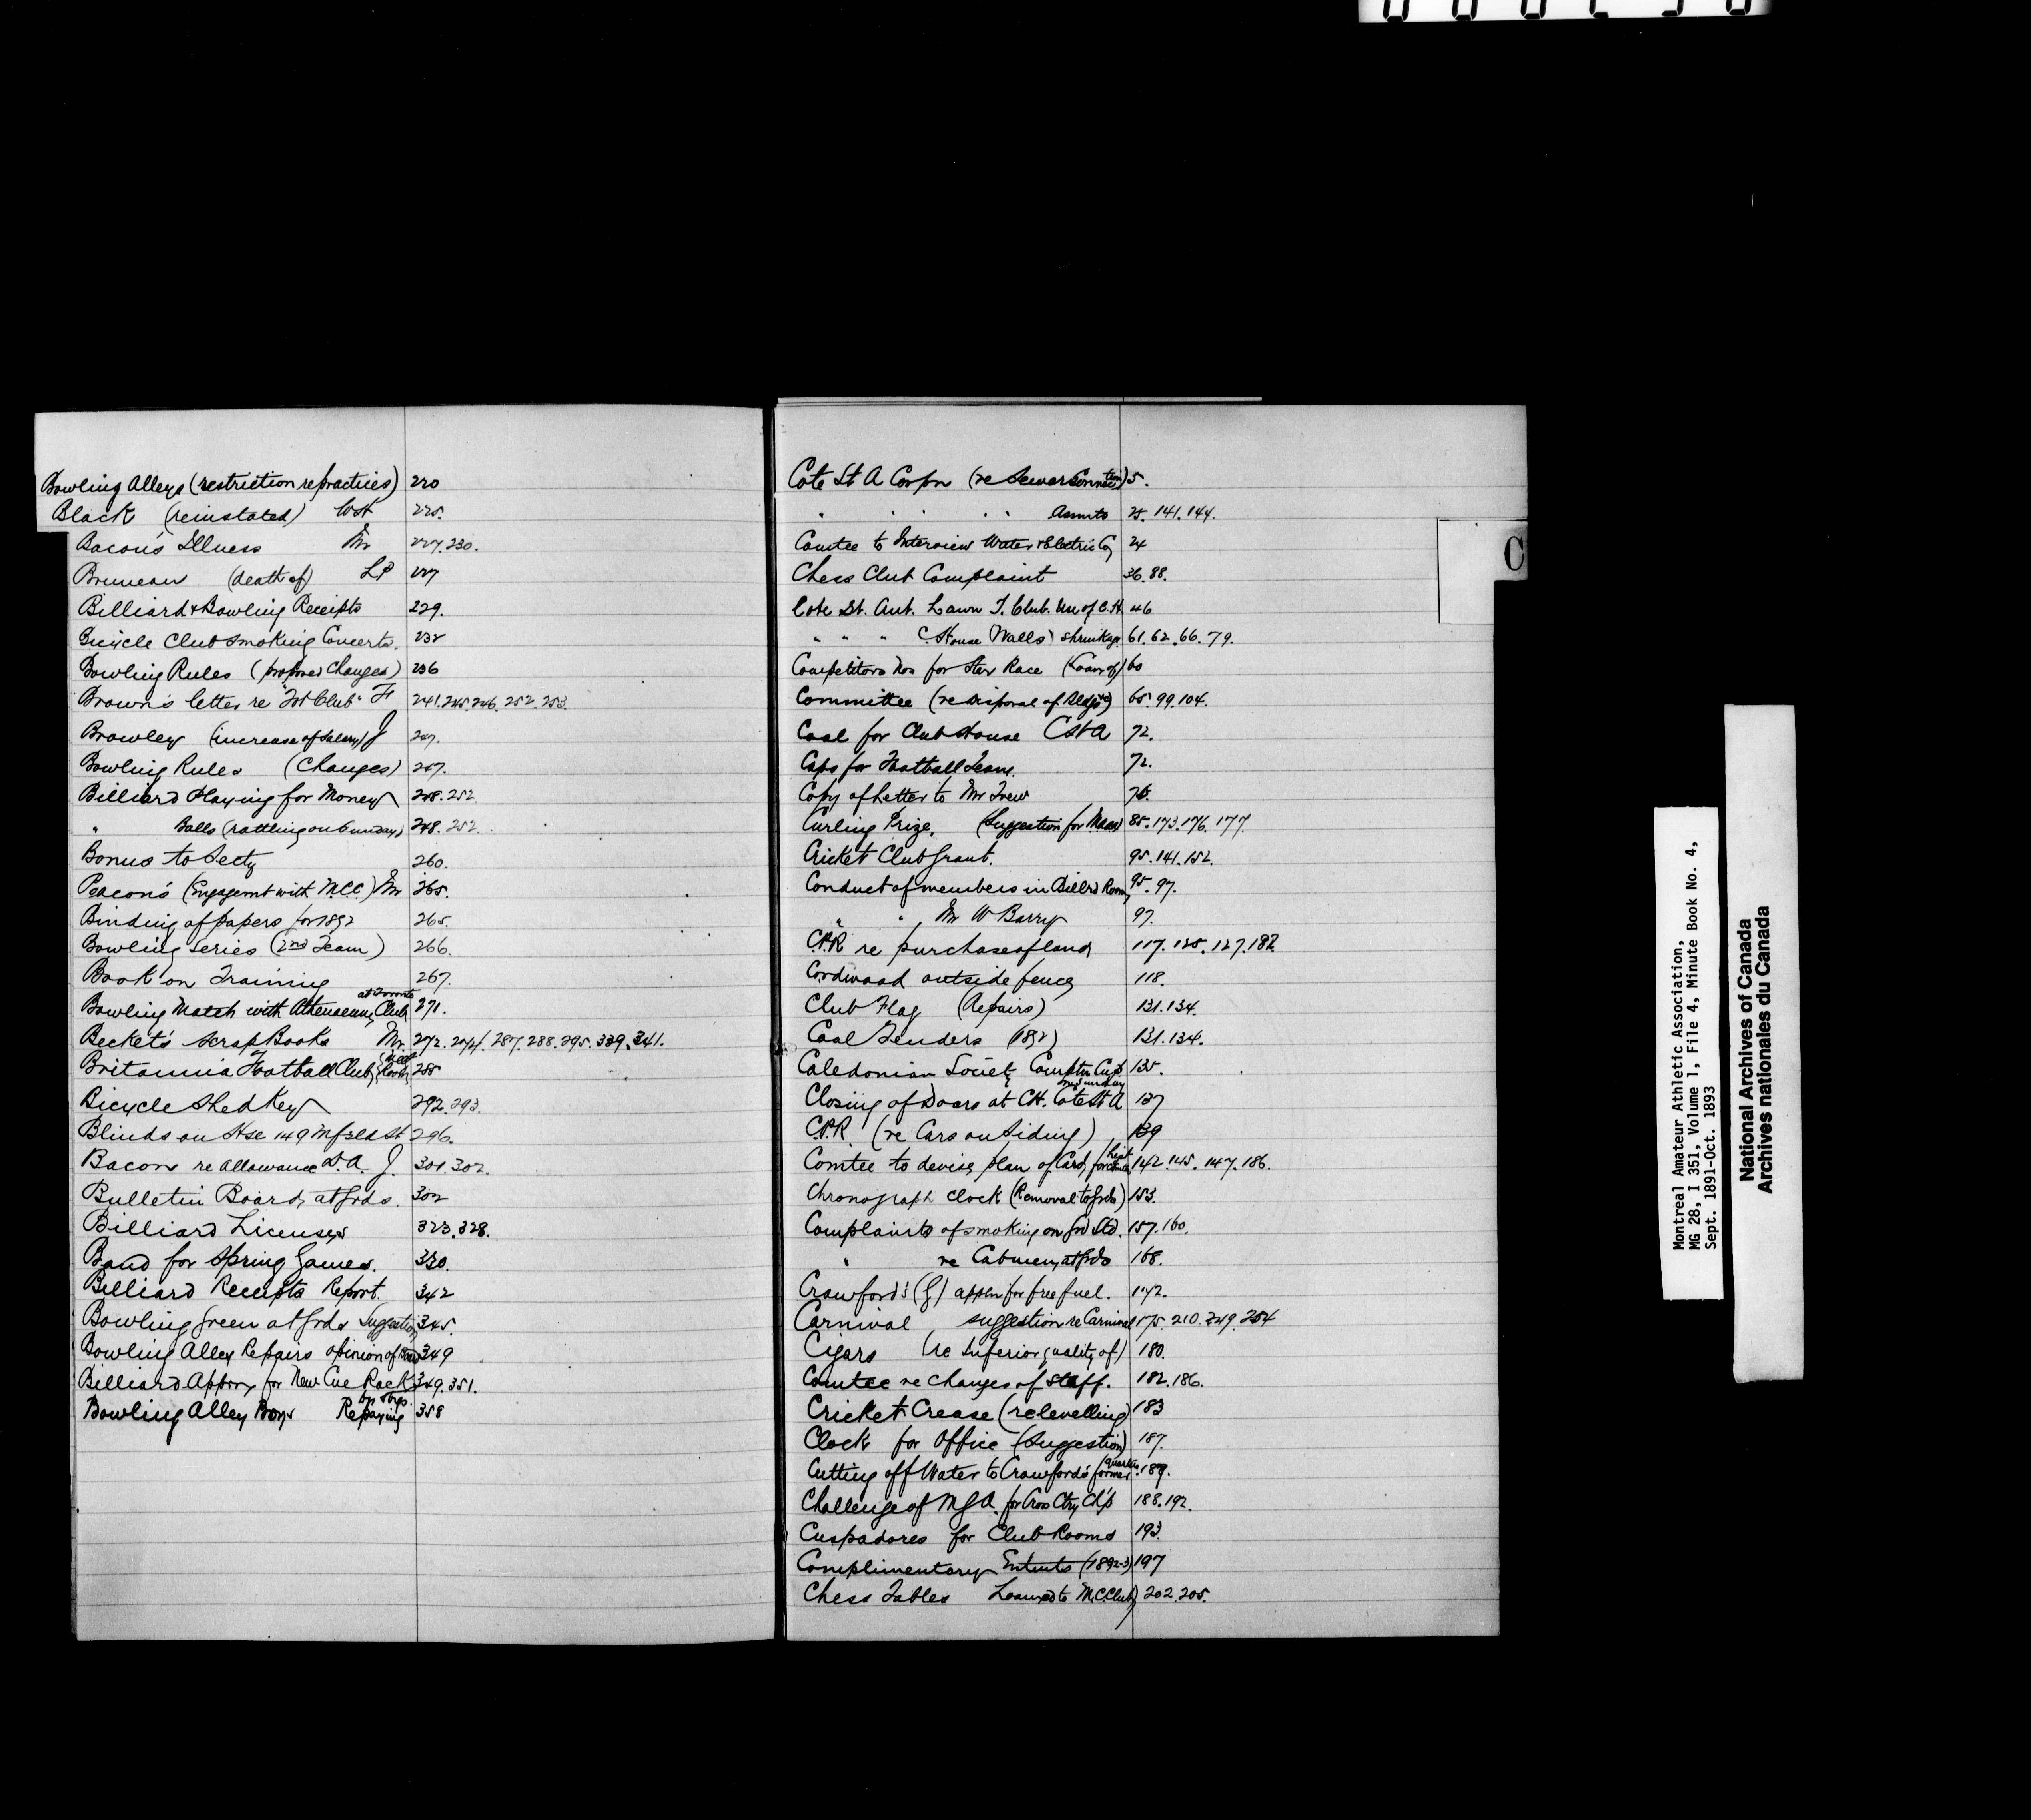 Bowling Alleys (restriction re practices) 220
Black (reinstated) WH 225.
Bacon's Illness Mr 227.230.
Bruneau (death of) LP 227
Billiard & Bowling Receipts 229.
Bicycle Club Smoking Concerts. 232
Bowling Rules (proposed Changes) 236
Brown's letter re "Tot Club" F 241.245.246.252.253.
Browley (increase of Salary) J 247.
Bowling Rules (Changes) 257.
Billiard Playing for Money 248.252.
" Balls (rattling on Sunday) 248.252.
Bonus to Secty 260.
Beacon's (Engagemt with M.C.C.) Mr 265.
Binding of papers for 1892 265.
Bowling Series (2nd Team) 266.
Book on Training 267.
Bowling Match with Athenaeum Club at Toronto 271.
Becket's Scrap Books Mr. 272.274.287.288.295.339.341.
Britannia Football Club 285
Bicycle Shed Key 292.293.
Blinds on Hse 149 Mfsld St 296.
Bacon re Allowance D.A. J. 301.302.
Bulletin Board, at Grds. 302
Billiard Licenses 323.328.
Band for Spring Games. 330.
Billiard Receipts Report. 342
Bowling Green at Grds Suggestion 345.
Bowling Alley Repairs opinion of 349
Billiard Appn for New Cue Rack 349.351.
Bowling Alley Boys Repaying 358
Cote St A Corpn (re Sewer Connection) 5.
" " " " " Assmts 25.141.144.
Comtee to Interview Water & Electric Co 24
Chess Club Complaint 36.88.
Cote St. Ant. Lawn T. Club. Use of C.H. 46
" " " C. House (Walls) shrinkage 61.62.66.79.
Competitors Nos for Star Race (Loan of) 60
Committee (re disposal of Bldgs) 65.99.104.
Coal for Club House C St A 72.
Caps for Football Team. 72.
Copy of Letter to Mr Trew 76.
Curling Prize. (Suggestion for ) 85.173.176.177.
Cricket Club Grant. 95.141.152.
Conduct of members in Billrd Room 95.97.
" " Mr W Barry 97.
C.P.R re purchase of land 117.125.127.182
Cordwood outside fence 118.
Club Flag (Repairs) 131.134.
Coal Tenders (1892) 131.134.
Caledonian Society Comptn Cup 135.
Closing of Doors at CH. Cote St A on Sunday 137
C.P.R. (re Cars on Siding) 139
Comtee to devise plan of Card, for 142.145.147.186.
Chronograph Clock (Removal to Grds) 153.
Complaints of smoking on Grd Std. 157.160.
" re Cabmen at Grds 168.
Crawford's (G) appln for free fuel. 172.
Carnival suggestion re Carnival 175.210.249.254
Cigars (re Inferior quality of) 180.
Comtee re Changes of Staff. 182.186.
Cricket Crease (relevelling) 183
Clock for Office (Suggestion) 187.
Cutting off Water to Crawford's former quarters 189.
Challenge of M.G.A. for Cross Ctry Ch'p 188.192.
Cuspadores for Club Rooms 193.
Complimentary Entmts (1892-3) 197
Chess Tables Loaned to M.C. Club 202.205.
C
Montreal Amateur Athletic Association,
MG 28, I 351, Volume 1, File 4, Minute Book No. 4,
Sept. 1891-Oct. 1893
National Archives of Canada
Archives nationales du Canada